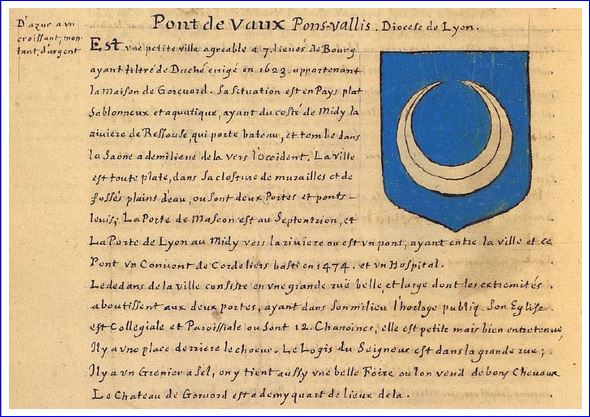 D'azur a vn
croissant, mon-
tant, d'argent
Pont de Vaux Pons-vallis. Diocese de Lyon.
Est vne petite ville agreable a 7. lieues de Bourg
ayant tiltré de Duché erigé en 1623. appartenant
la maison de Gorvord. Sa situation est en Pays plat
Sablonneux et aquatique, ayant du costé de Midy la
riviere de Ressouse, qui porte bateau, et tombe dans
la Saone a demilieue de la vers l'occident. La ville
est toute plate, dans sa closture de murailles et de
fossés plains d'eau, ou sont deux Portes et ponts-
levis; La Porte de Mascon est au Septentrion, et
La Porte de Lyon au Midy vers la riviere ou est vn pont, ayant entre la ville et ce
Pont vn Conuent de Cordeliers basti en 1474. et vn Hospital.
Le dedans de la ville consiste en vne grande rue belle et large dont les extremités
aboutissent aux deux portes, ayant dans son milieu l'horloge publiq. Son Eglise
est Collegiale et Paroissiale ou sont 12. Chanoines, elle est petite mais bien entretenue
Il y a vne place derriere le choeur. Le Logis du Seigneur est dans la grande rue;
Il y a vn Grenier a Sel, on y tient aussy vne belle Foire ou lon vend de bons Chevaux
Le Chateau de Gorvord est a demy quart de lieue de la.